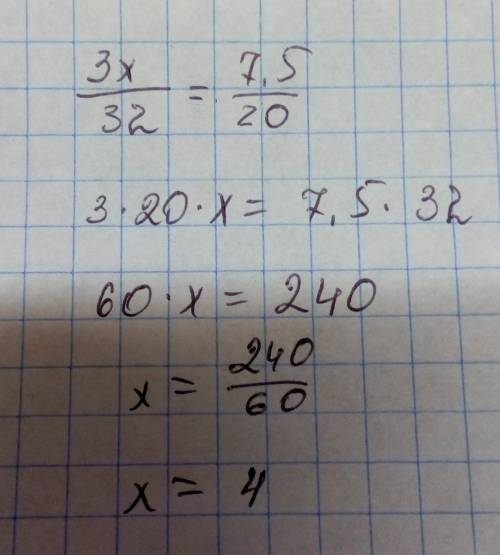 3x/32 = 7,5/20
3·20·x = 7,5·32
60·x = 240
x = 240/60
x = 4